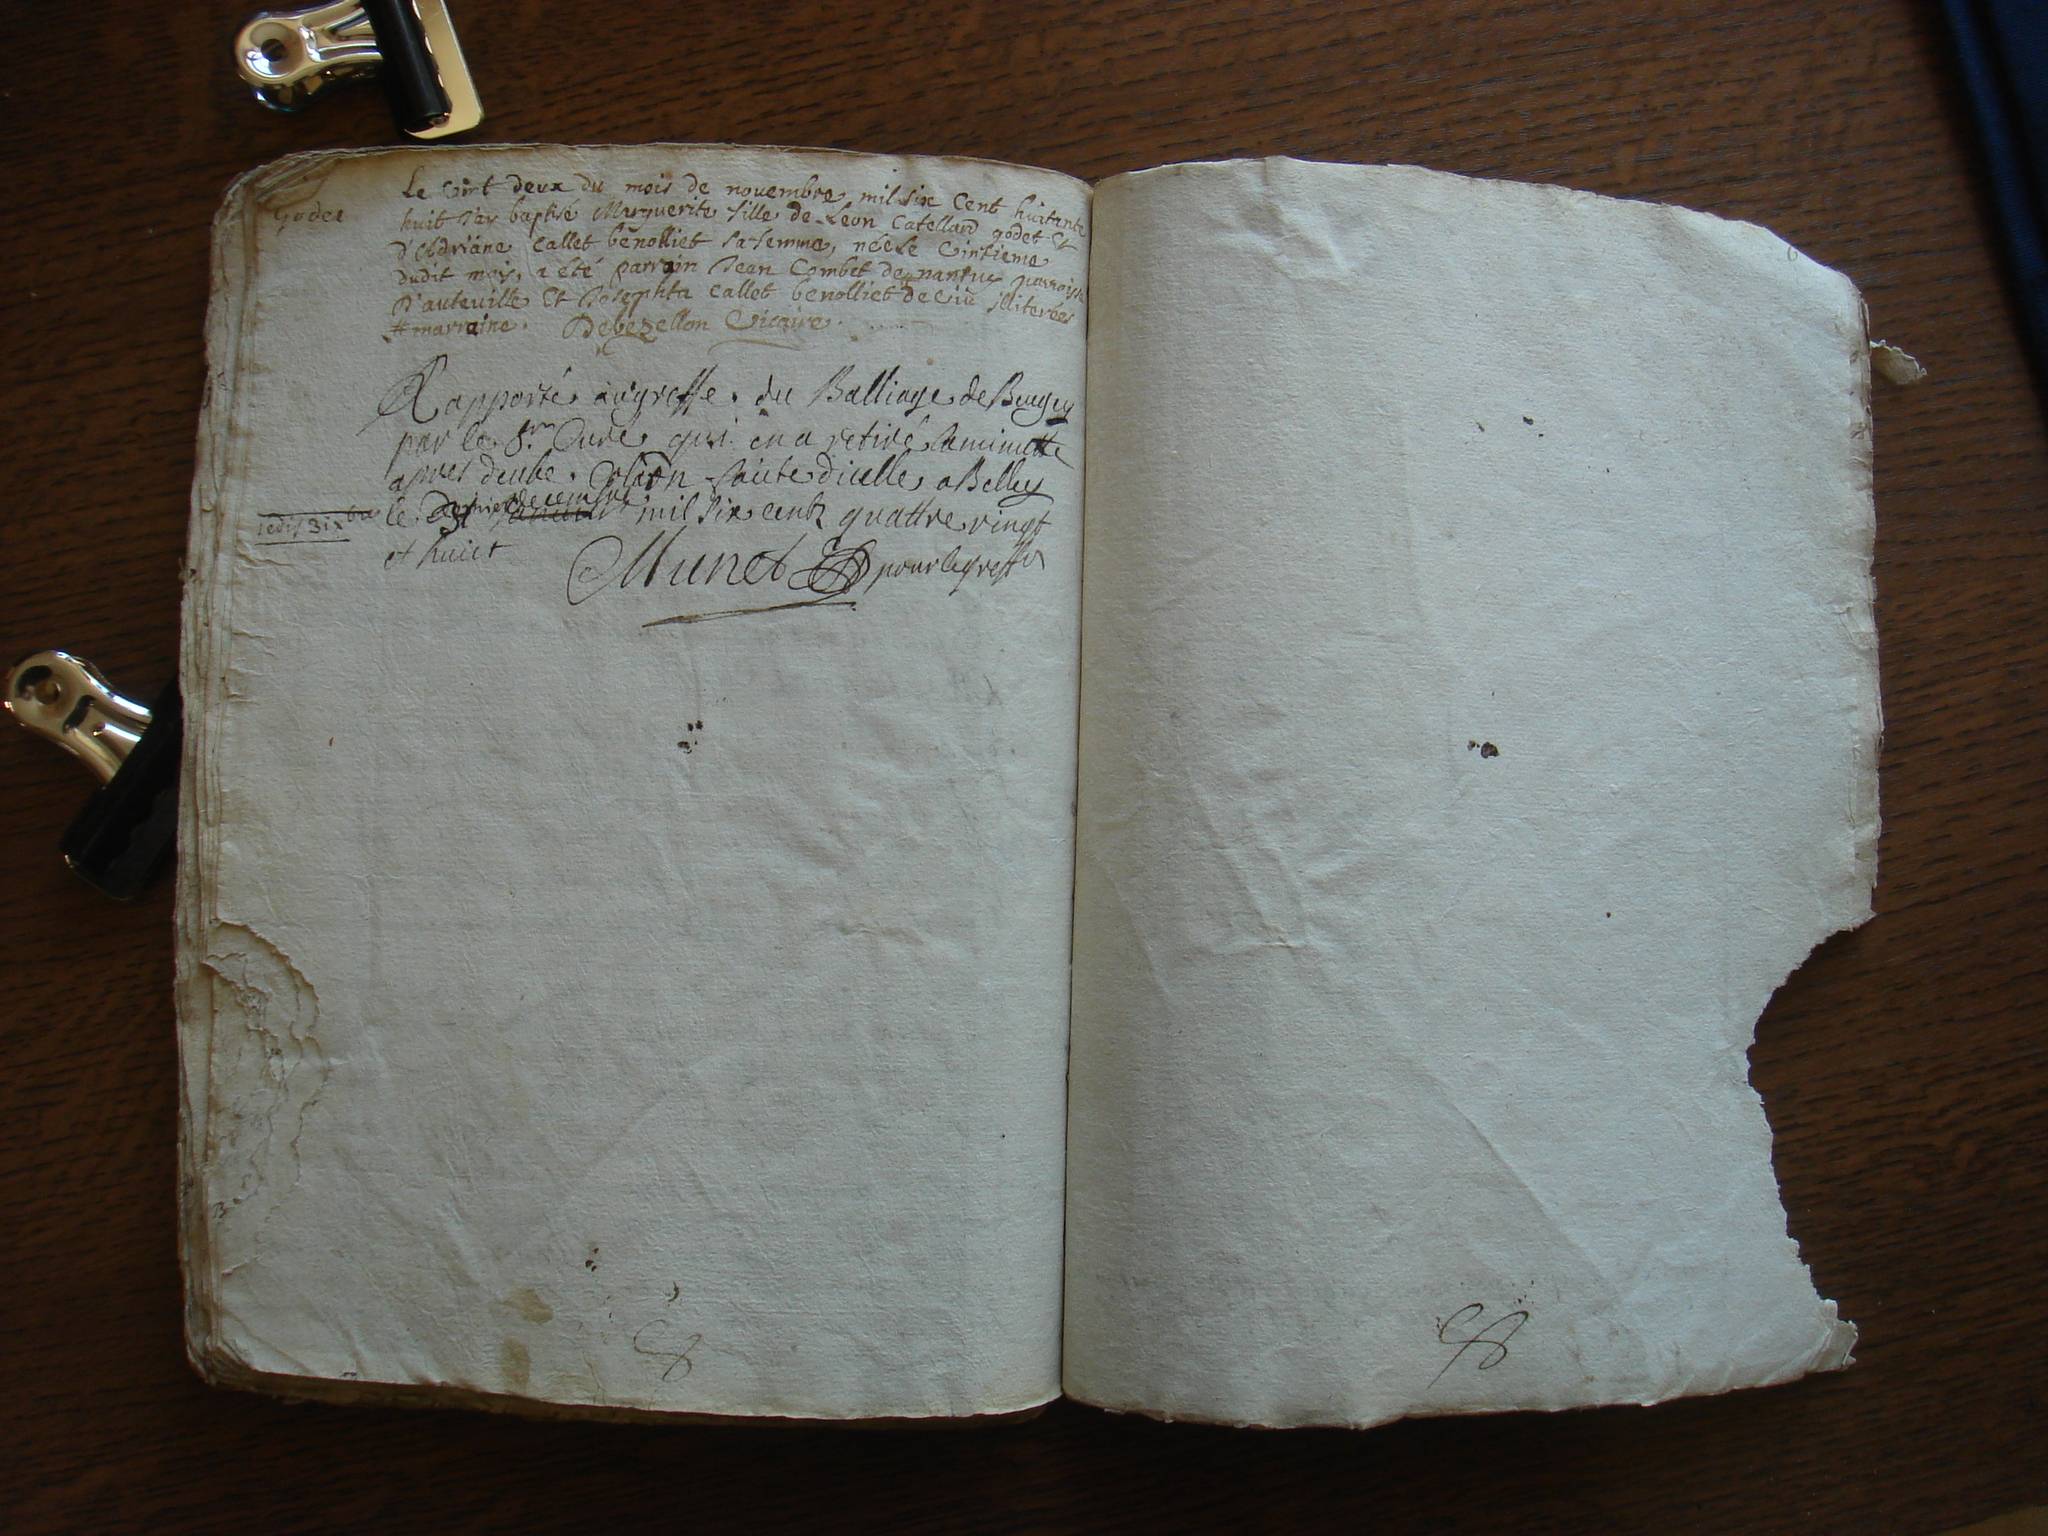 godet
Le vint deux du mois de novembre mil six Cent huitante
huit J'ay baptisé Marguerite fille de Leon Catelland godet Et
D'Adriane Callet benolliet sa femme, née Le vintieme
dudit mois, a été parrain Jean Combet de nantuy parroisse
D'auteuille Et Josephta Callet benolliet de illiterées
marraine. Debezellon Vicaire.
Rapporté au greffe du Balliage de Beugey
par le Sr Curé qui en a retiré la minutte
apres deube faitte dicelle a Belley
le Dernier decembre mil six centz quattre vingt
et huict
Munet pour le greffe
6